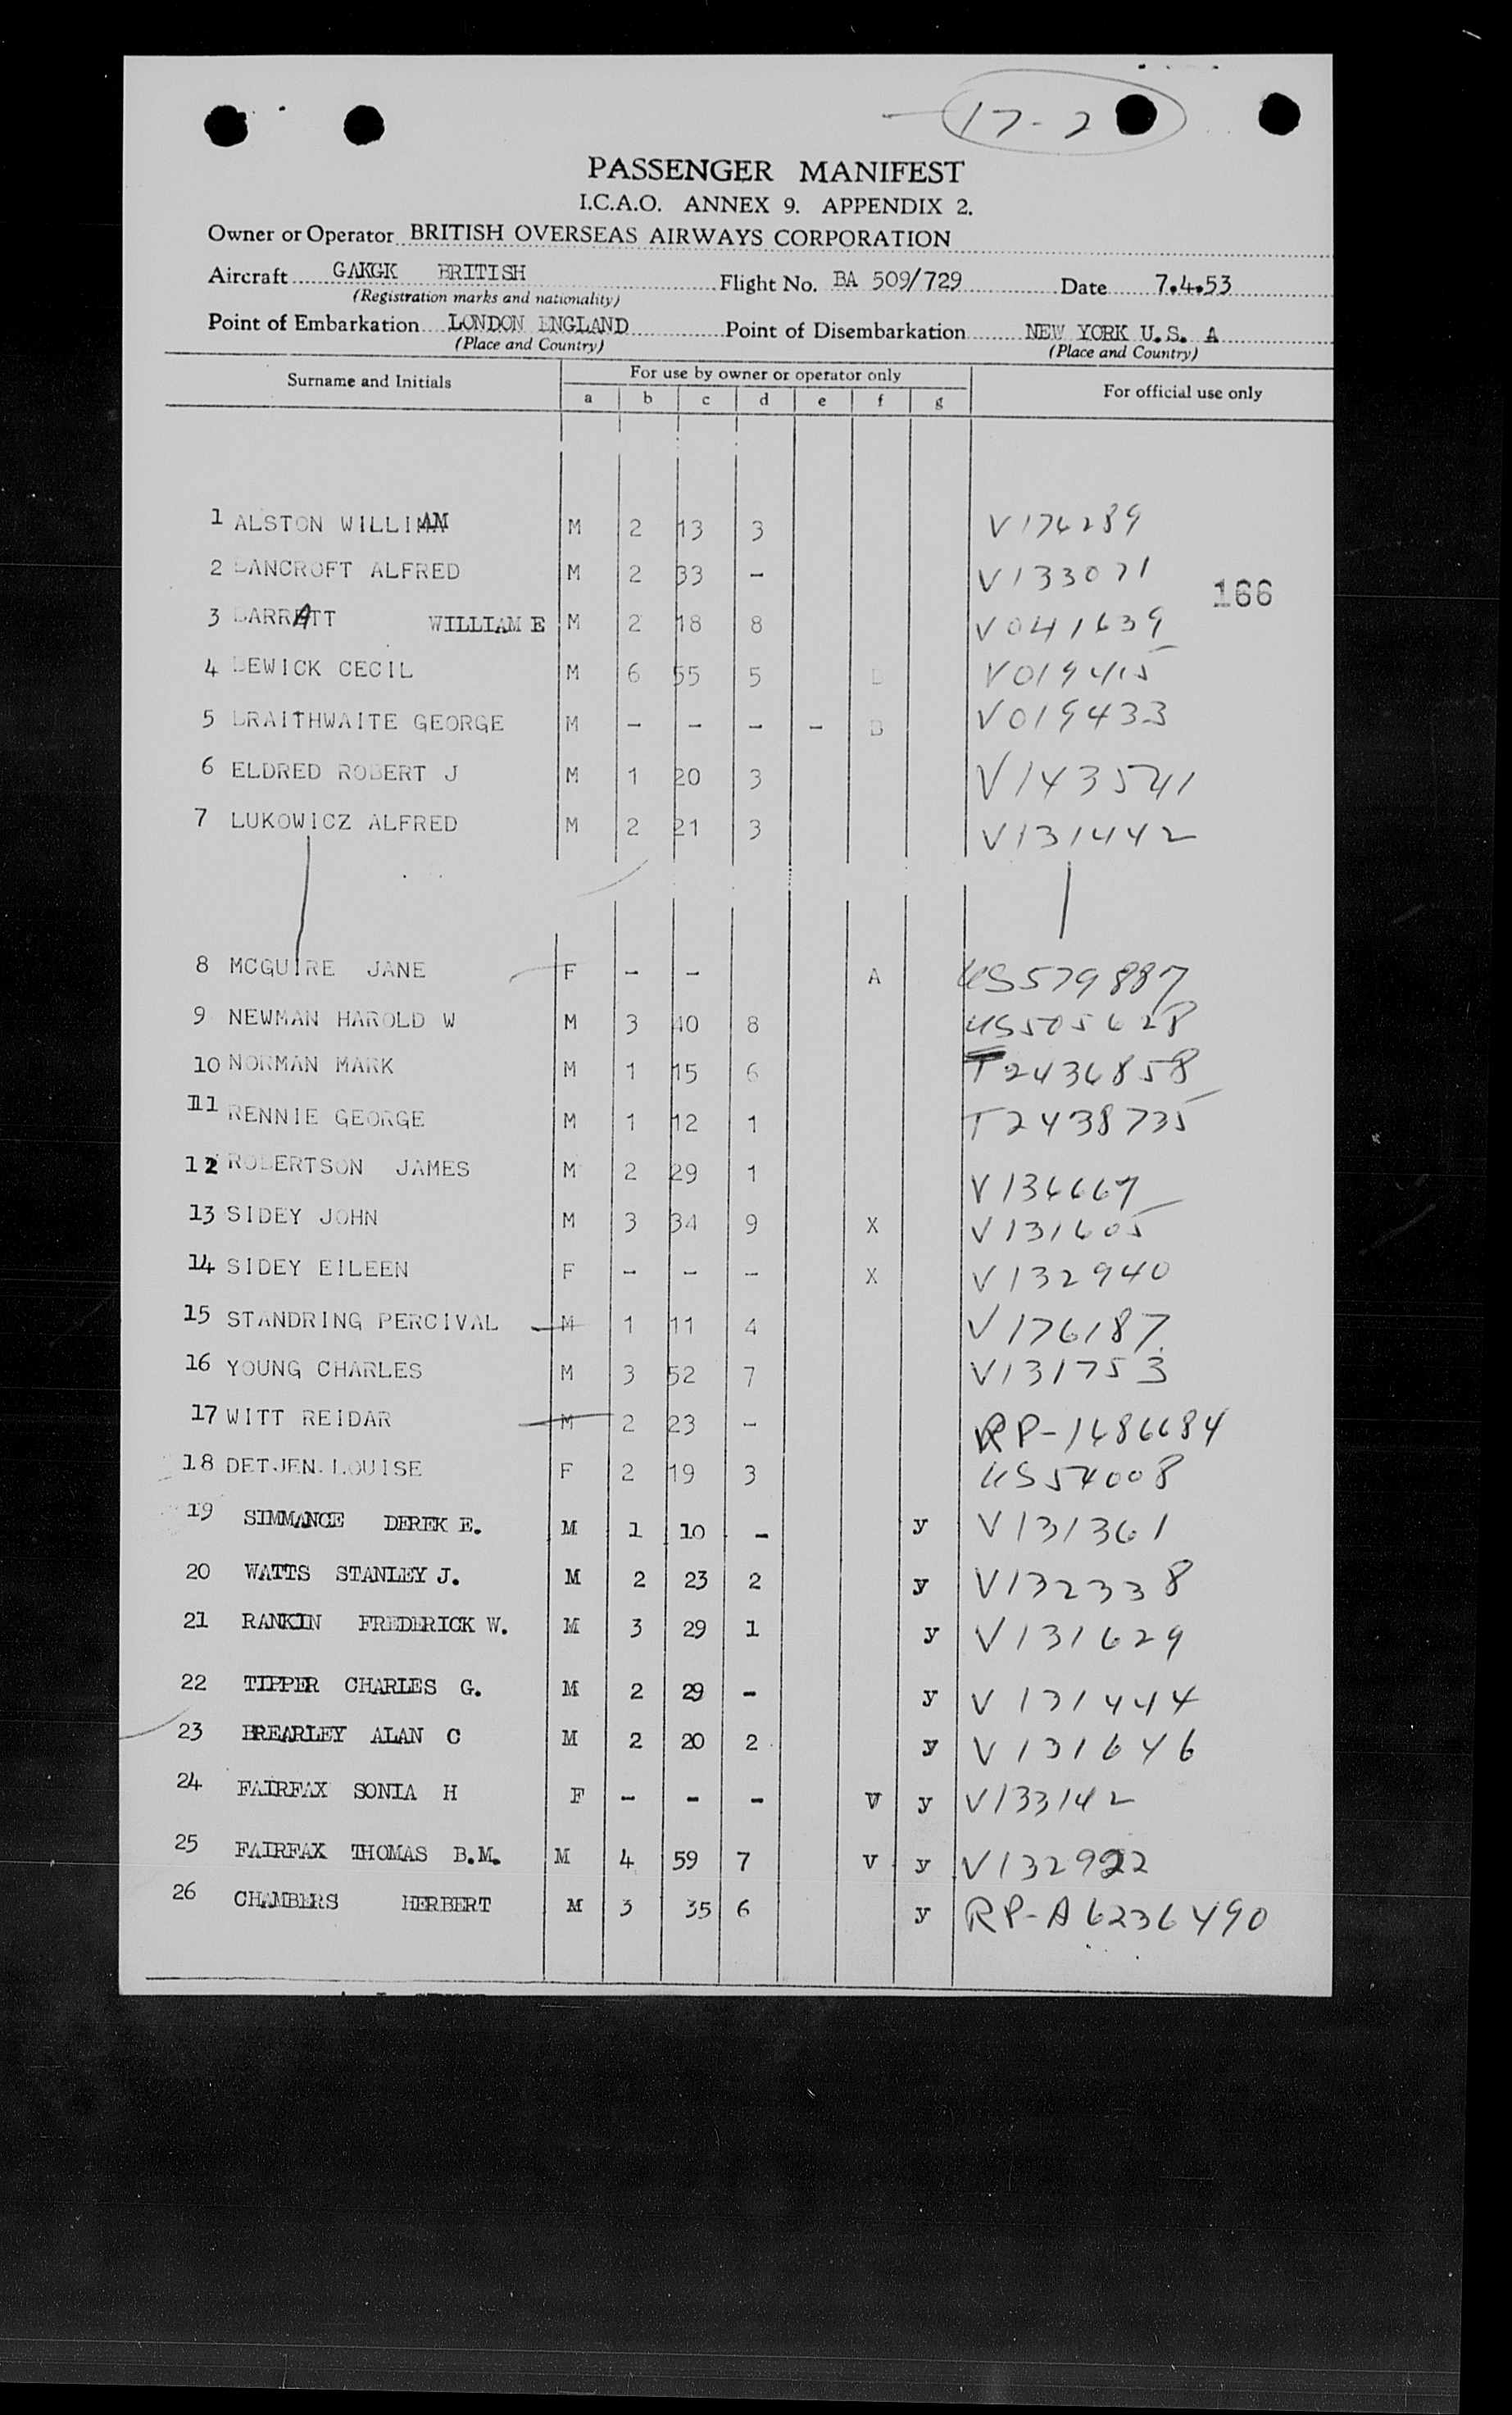 17-2
PASSENGER MANIFEST
I.C.A.O. ANNEX 9. APPENDIX 2.
Owner or Operator BRITISH OVERSEAS AIRWAYS CORPORATION
Aircraft GAKGK BRITISH Flight No. BA 509/729 Date 7.4.53
(Registration marks and nationality)
Point of Embarkation LONDON ENGLAND Point of Disembarkation NEW YORK U.S. A
(Place and Country) (Place and Country)
Surname and Initials For use by owner or operator only For official use only
a b c d e f g
1 ALSTON WILLIAM M 2 13 3 V176289
2 BANCROFT ALFRED M 2 33 - V133071
166
3 BARRATT WILLIAM E M 2 18 8 V041639
4 BEWICK CECIL M 6 55 5 B V019415
5 BRAITHWAITE GEORGE M - - - - B V019433
6 ELDRED ROBERT J M 1 20 3 V143541
7 LUKOWICZ ALFRED M 2 21 3 V131442
8 MCGUIRE JANE F - - A US579887
9 NEWMAN HAROLD W M 3 40 8 US505628
10 NORMAN MARK M 1 15 6 T2436858
11 RENNIE GEORGE M 1 12 1 T2438735
12 ROBERTSON JAMES M 2 29 1 V136667
13 SIDEY JOHN M 3 34 9 X V131605
14 SIDEY EILEEN F - - - X V132940
15 STANDRING PERCIVAL M 1 11 4 V176187
16 YOUNG CHARLES M 3 52 7 V131753
17 WITT REIDAR M 2 23 - RP-1486684
18 DETJEN LOUISE F 2 19 3 US54008
19 SIMMANCE DEREK E. M 1 10 - y V131361
20 WATTS STANLEY J. M 2 23 2 y V132338
21 RANKIN FREDERICK W. M 3 29 1 y V131629
22 TIPPER CHARLES G. M 2 29 - y V131444
23 BREARLEY ALAN C M 2 20 2 y V131646
24 FAIRFAX SONIA H F - - - V y V133142
25 FAIRFAX THOMAS B.M. M 4 59 7 V y V132922
26 CHAMBERS HERBERT M 3 35 6 y RP-A6236490